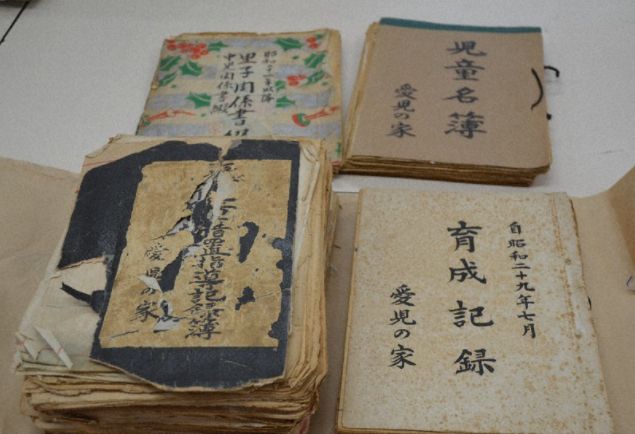 昭和二十一年以降
里子関係書類
児童名簿
愛児の家
措置指導記録簿
愛児の家
自昭和二十九年七月
育成記録
愛児の家